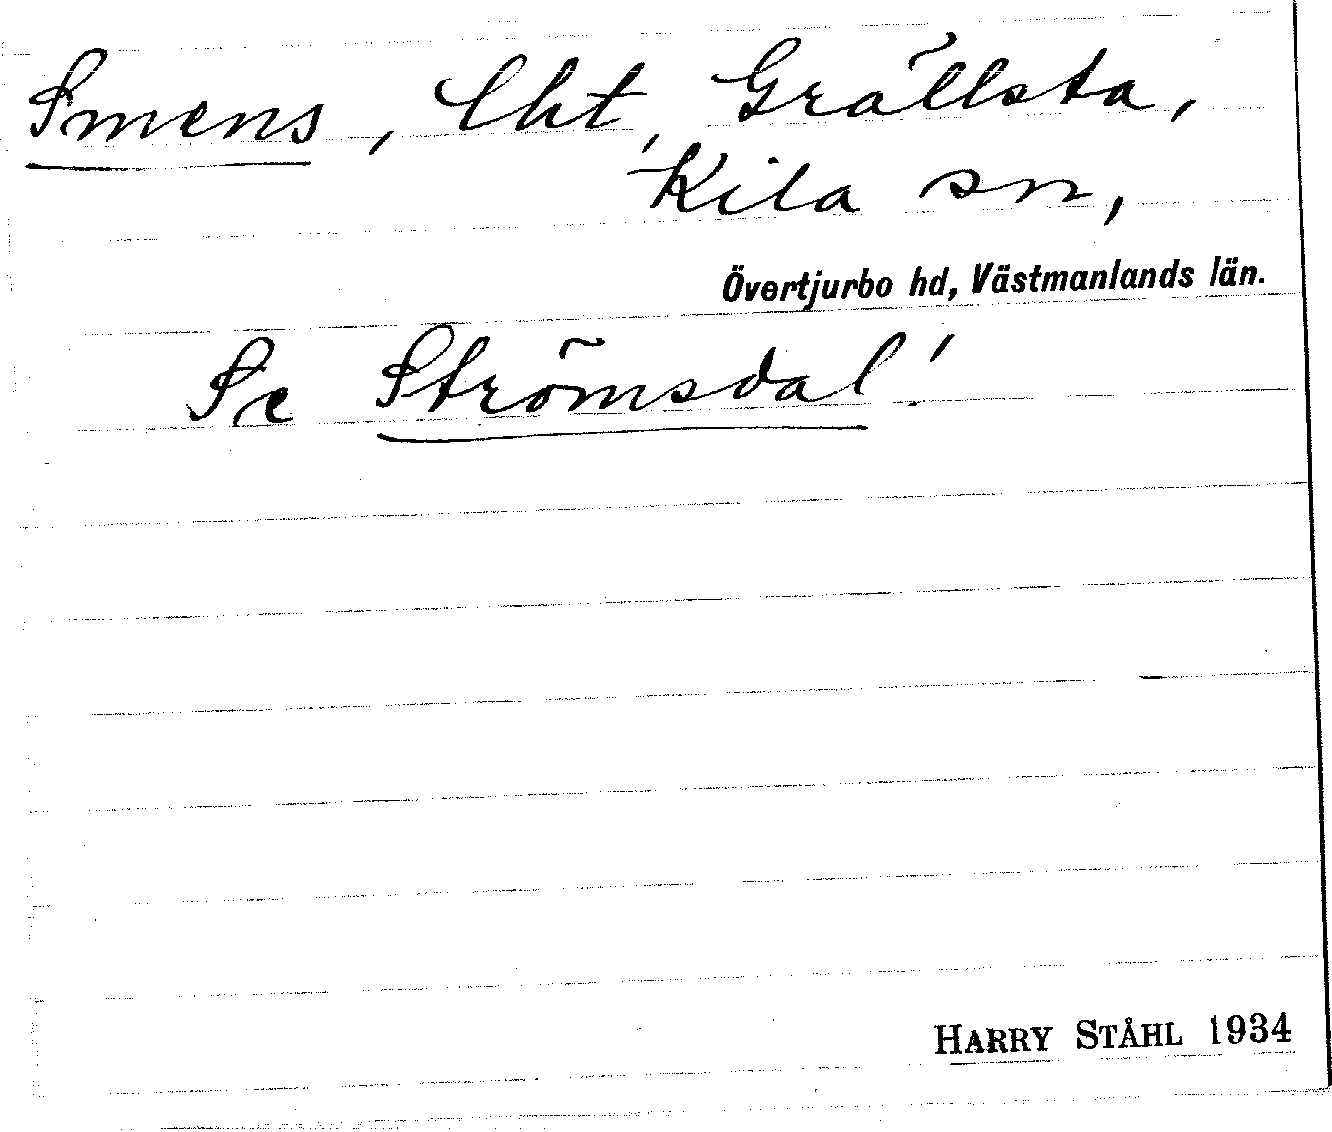 Smens, lht, Grällsta,
Kila sn,
Övertjurbo hd, Västmanlands län.
Se Strömsdal!
HARRY STÅHL 1934